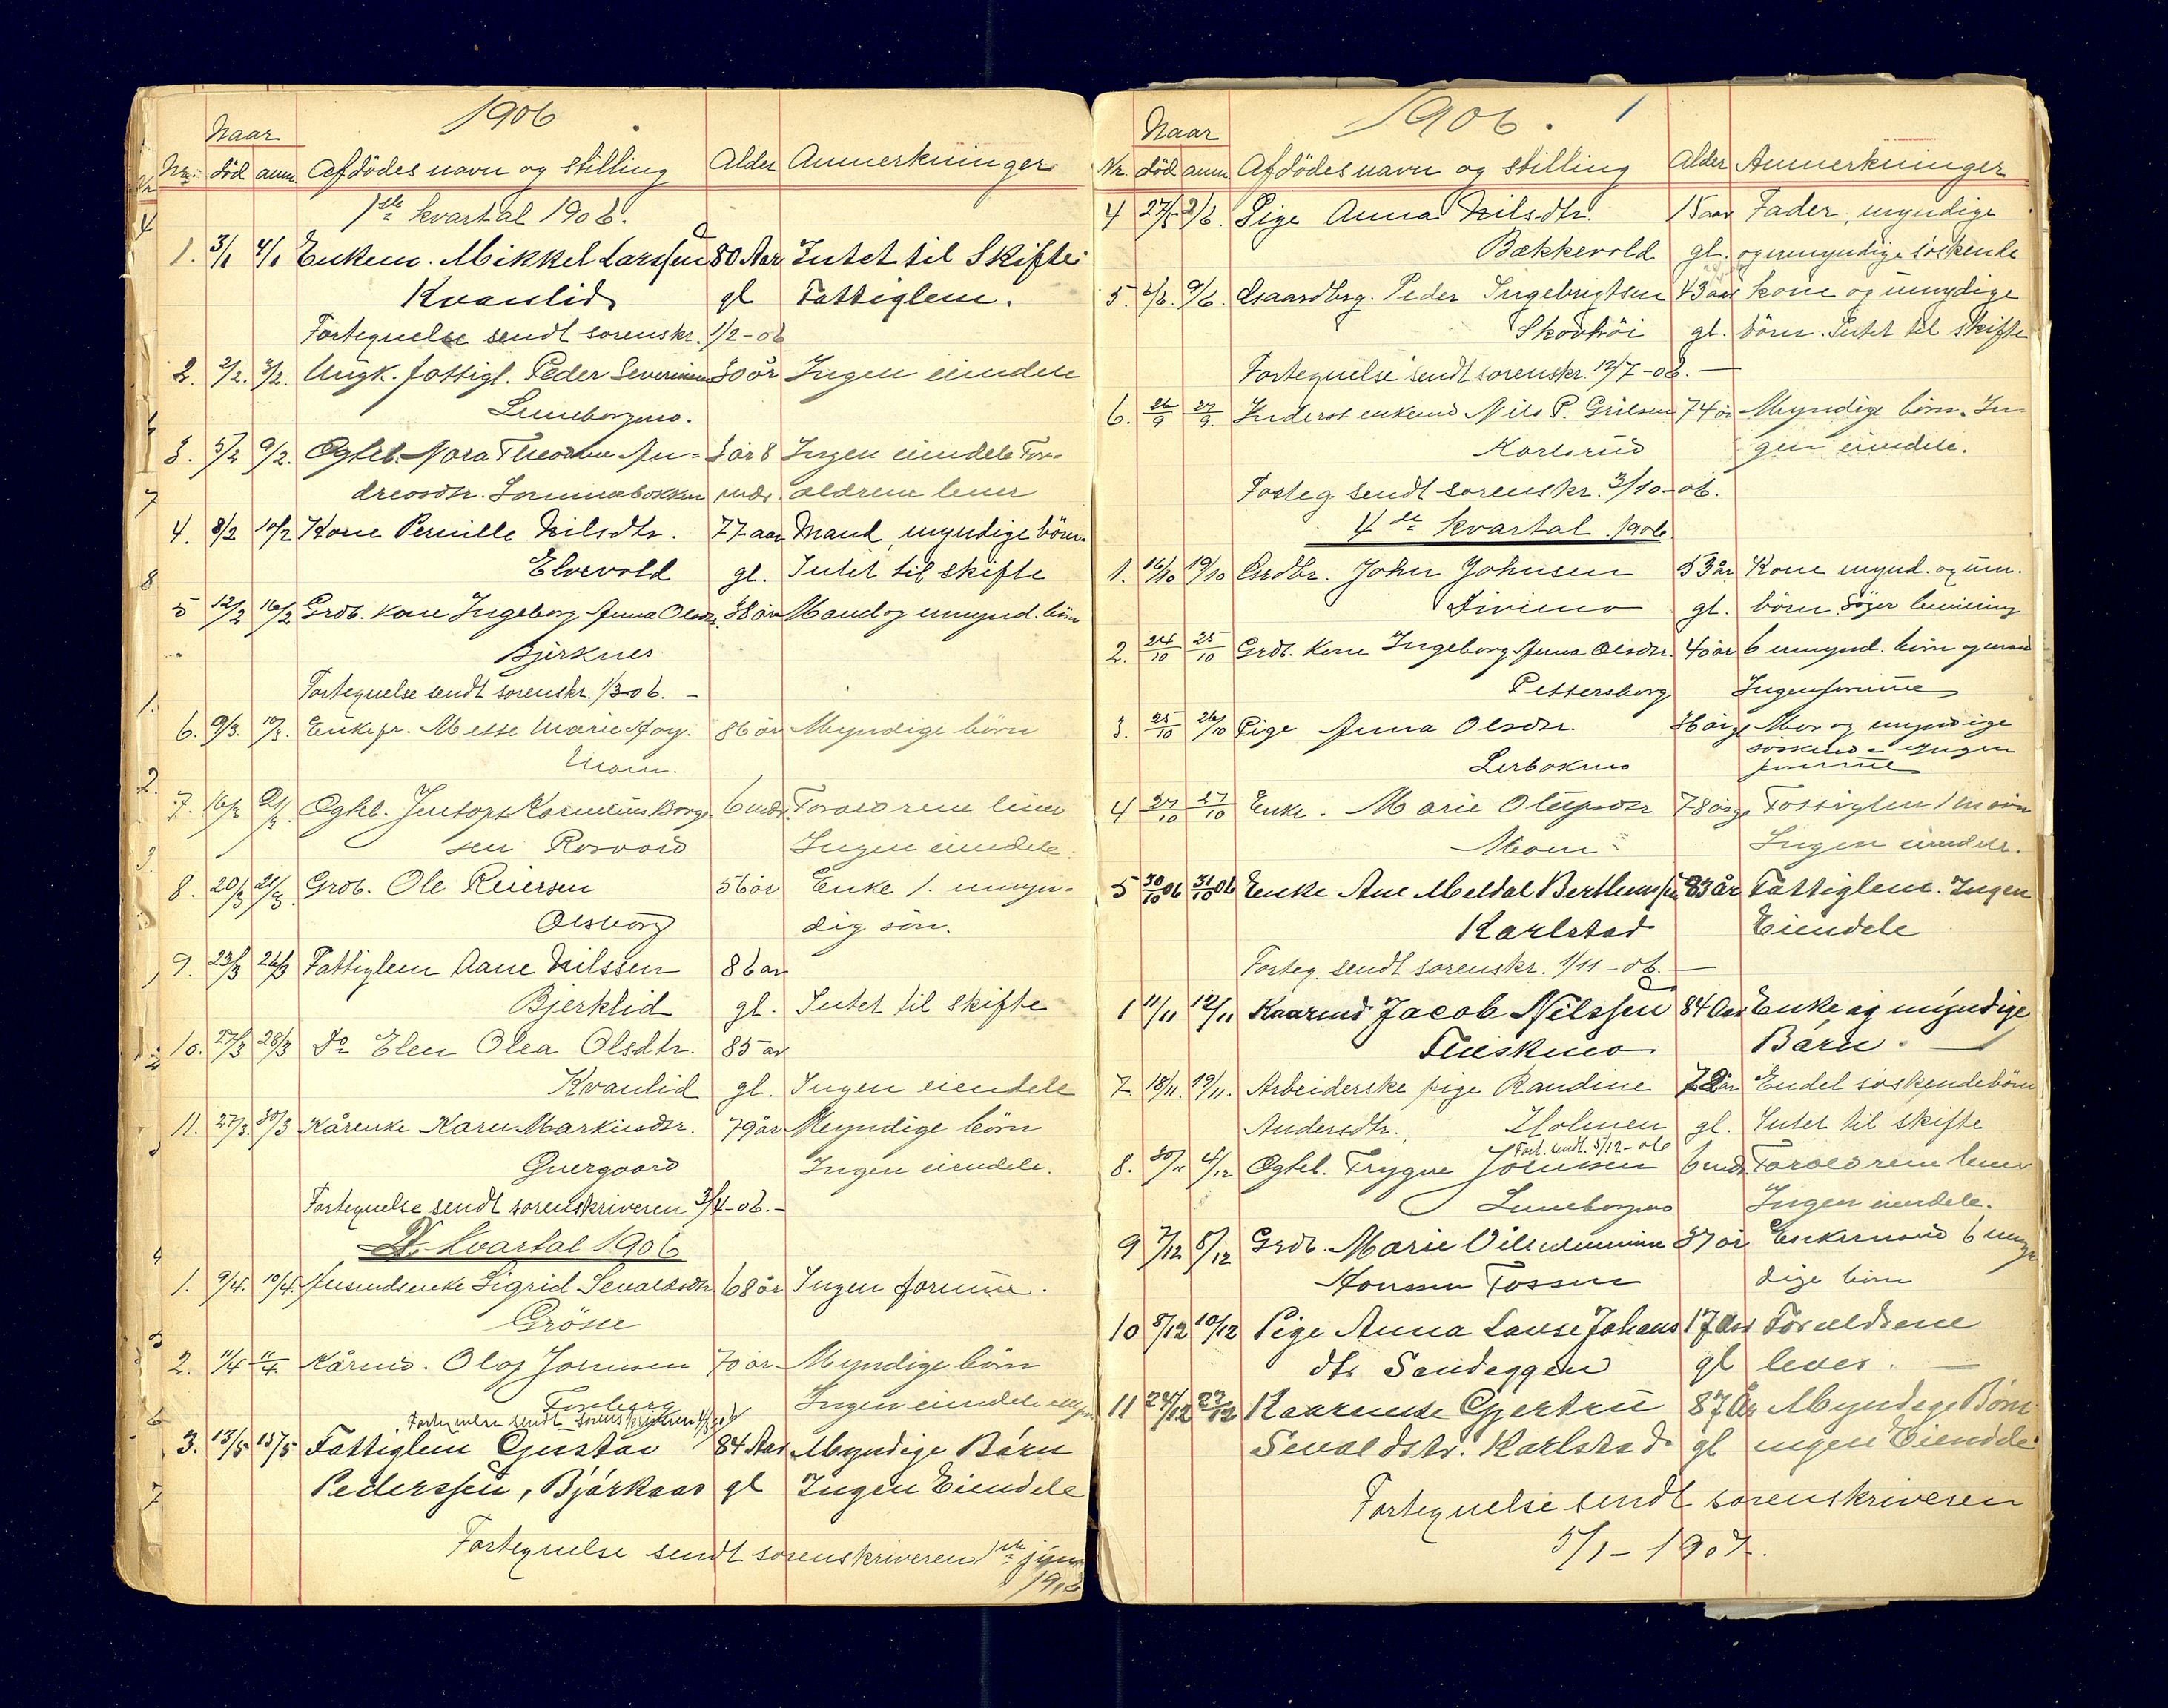 1906
Naar
Nr. död anm. Afdödes navn og stilling Alder Anmerkninger
1ste kvartal 1906.
1. 3/1 4/1 Enkem. Mikkel Larssen 80 Aar Intet til Skifte
Kvanlid gl Fattiglem.
Fortegnelse sendt sorenskr. 1/2-06
2. 2/2. 3/2. Ungk. fattigl. Peder Severinsen 30 år Ingen eiendele
Luneborgmo.
3. 5/2 9/2. Ogteb. Nora Theodine An= 3 år 8 Ingen eiendele For-
dreasdtr. mdr. ældrene lever
4. 8/2 10/2 Kone Pernille Nilsdtr. 77 aar Mand, myndige börn.
Elvevold gl. Intet til skifte
5 12/2 16/2 Grdb. kone Ingeborg Anna Olsdtr. 38 år Mand og umynd. börn
Bjerknes
Fortegnelse sendt sorenskr. 1/3-06. -
6. 9/3. 10/3. Enkefr. Messe Marie Aag. 86 år Myndige börn
Moen.
7. 16/3 21/3. Ogteb. Jentoft Kornelius Borge- 6 mdr. Forældrene lever
sen Rosvold Ingen eiendele.
8. 20/3 21/3. Grdb. Ole Reiersen 56 år Enke 1. umyn-
Olsborg dig sön.
9. 23/3 26/3 Fattiglem Aane Nilssen 86 aar
Bjerklid gl. Intet til skifte
10. 27/3 28/3 Do Elen Olea Olsdtr. 85 aar
Kvanlid gl. Ingen eiendele
11. 27/3. 30/3 Kårenke Karen Markusdtr. 79 år Myndige börn
Guergaard Ingen eiendele.
Fortegnelse sendt sorenskriveren 3/4-06.-
2. kvartal 1906
1. 9/4. 10/4. Husmdsenke Sigrid Sevaldsdtr 68 år Ingen formue.
Grösne
2. 11/4 11/4. Kårmd. Olaf Jörensen 70 år Myndige börn
Ingen eiendele
Fortegnelse sendt sorenskriveren
3. 13/5 15/5 Fattiglem Gustav 84 Aar Myndige Börn
Pederssen, Björkaas gl Ingen Eiendele
Fortegnelse sendt sorenskriveren 1ste juni
1906
1906.
Naar
Nr. död anm Afdödes navn og stilling Alder Anmerkninger
4 27/5 2/6. Pige Anna Nilsdtr. 15 aar Fader, myndige
Bakkevold gl. og umyndige söskende
5. 2/6. 9/6. Gaardbrg. Peder Ingebrigtsen 43 aar kone og umydige
Skovhöi gl. börn. Intet til skifte
Fortegnelse sendt sorenskr. 12/7-06. -
6. 26/9 27/9. Inderst enkemd Nils P. 74 år Myndige börn. In-
Karlsrud gen eiendele.
Forteg. sendt sorenskr. 3/10-06.
4de kvartal 1906
1. 16/10 19/10 Grdbr. John Johnsen 53 år Kone mynd. og um.
Divimo gl. börn Söger bevilling
2. 24/10 25/10 Grdb. kone Ingeborg Anna Olsdtr. 40 år 6 umynd. börn og mand
Pettersborg Ingen formue
3. 25/10 26/10 Pige Anna Olsdtr. 36 år gl Mor og myndige
Lerbokmo söskende Ingen
formue
4 27/10 27/10 Enke. Marie 78 år gl Fattiglem
Moen Ingen eiendele.
5 30/10 06 31/10 06 Enke Ane Meldal Berthenssen 83 år Fattiglem. Ingen
Karlstad Eiendele
Forteg. sendt sorenskr. 1/11-06. -
1 11/11 12/11 Kaarmd Jacob Nilssen 84 Aar Enke og myndige
Fleskmo Börn.
7. 18/11. 19/11. Arbeiderske pige Randine 72 år Endel söskendebörn
Andersdtr. Holmen gl. Intet til skifte
Fort. sendt. 5/12-06
8. 30/11 4/12 Ogteb. Trygve Johnsen 6 mdr. Forældrene lever
Luneborgmo Ingen eiendele.
9 7/12 8/12 Grdb. Marie Vilhelmine 37 år Enkemand 6 umyn
Hanssen Fossen dige börn
10 8/12 10/12 Pige Anna Lovise Johans 17 Aar Forældrene
dtr Sandeggen gl lever. -
11 24/12 27/12 Kaarenke Gjertru 87 Aar Myndige Börn
Sevaldstr. Karlstad gl ingen Eiendele
Fortegnelse sendt sorenskriveren
5/1-1907.